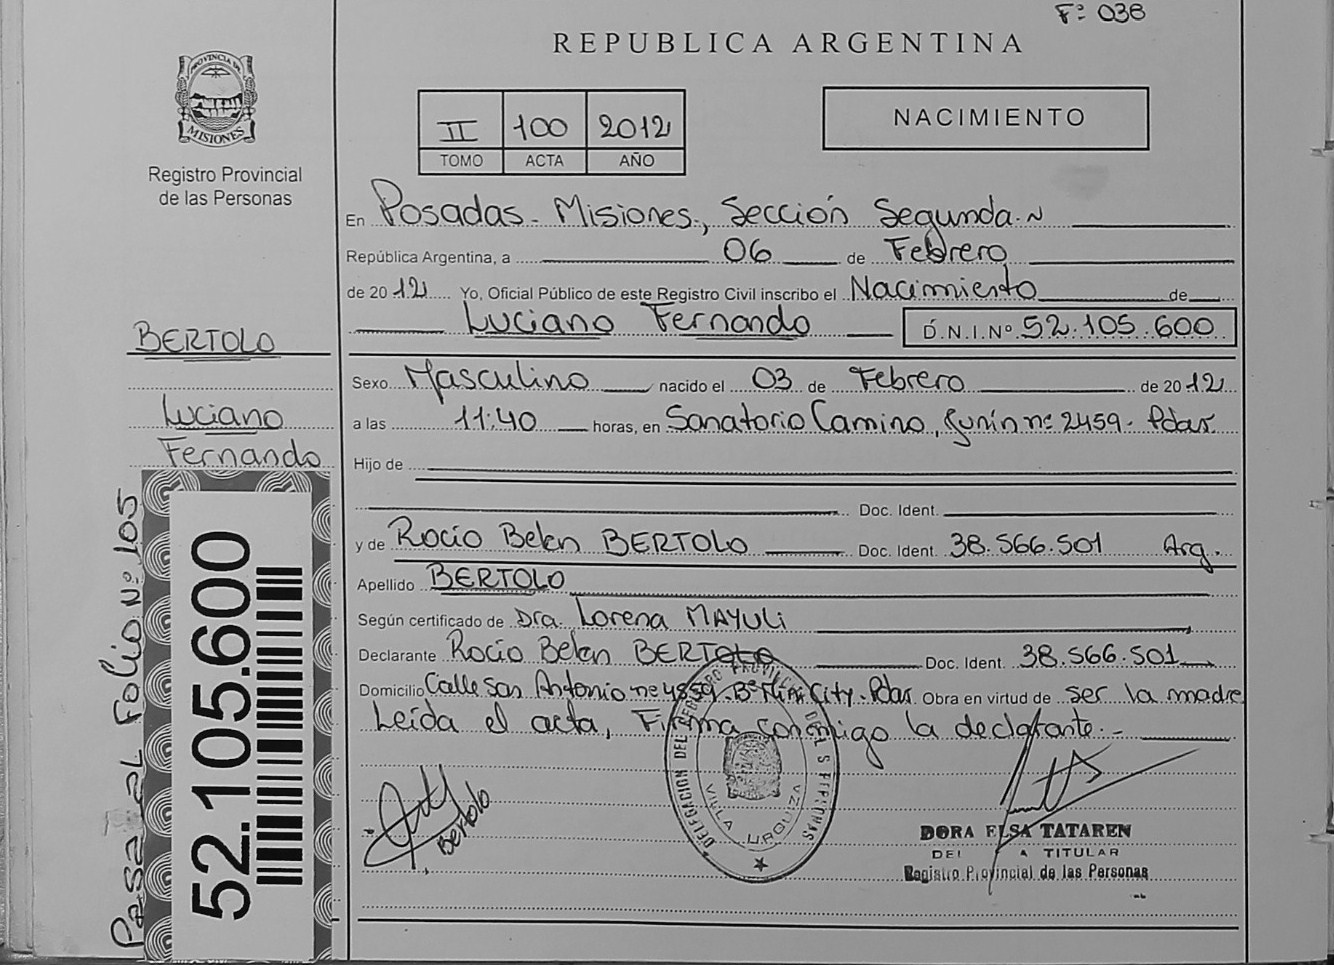 Fº 038
REPUBLICA ARGENTINA
PROVINCIA DE
MISIONES
Registro Provincial
de las Personas
II 100 2012
TOMO ACTA AÑO
NACIMIENTO
En Posadas - Misiones, Sección Segunda
República Argentina, a 06 de Febrero
de 2012 Yo, Oficial Público de este Registro Civil inscribo el Nacimiento de
Luciano Fernando D.N.I.Nº 52.105.600
BERTOLO
Luciano
Fernando
Sexo Masculino nacido el 03 de Febrero de 2012
a las 11:40 horas, en Sanatorio Camino, Junín nº 2459 - Pdas.
Hijo de
Doc. Ident.
y de Rocío Belen BERTOLO Doc. Ident. 38.566.501 Arg.
Apellido BERTOLO
Según certificado de Dra. Lorena MAYULI
Declarante Rocío Belen BERTOLO Doc. Ident. 38.566.501
Domicilio Calle San Antonio nº 4859 - Bº Mini City - Pdas Obra en virtud de ser la madre
Leída el acta, Firma conmigo la declarante.-
Pasa al Folio Nº 105
52.105.600
Bertolo
DELEGACION DEL REGISTRO PROVINCIAL DE LAS PERSONAS
VILLA URQUIZA
DORA ELSA TATAREN
TITULAR
Registro Provincial de las Personas